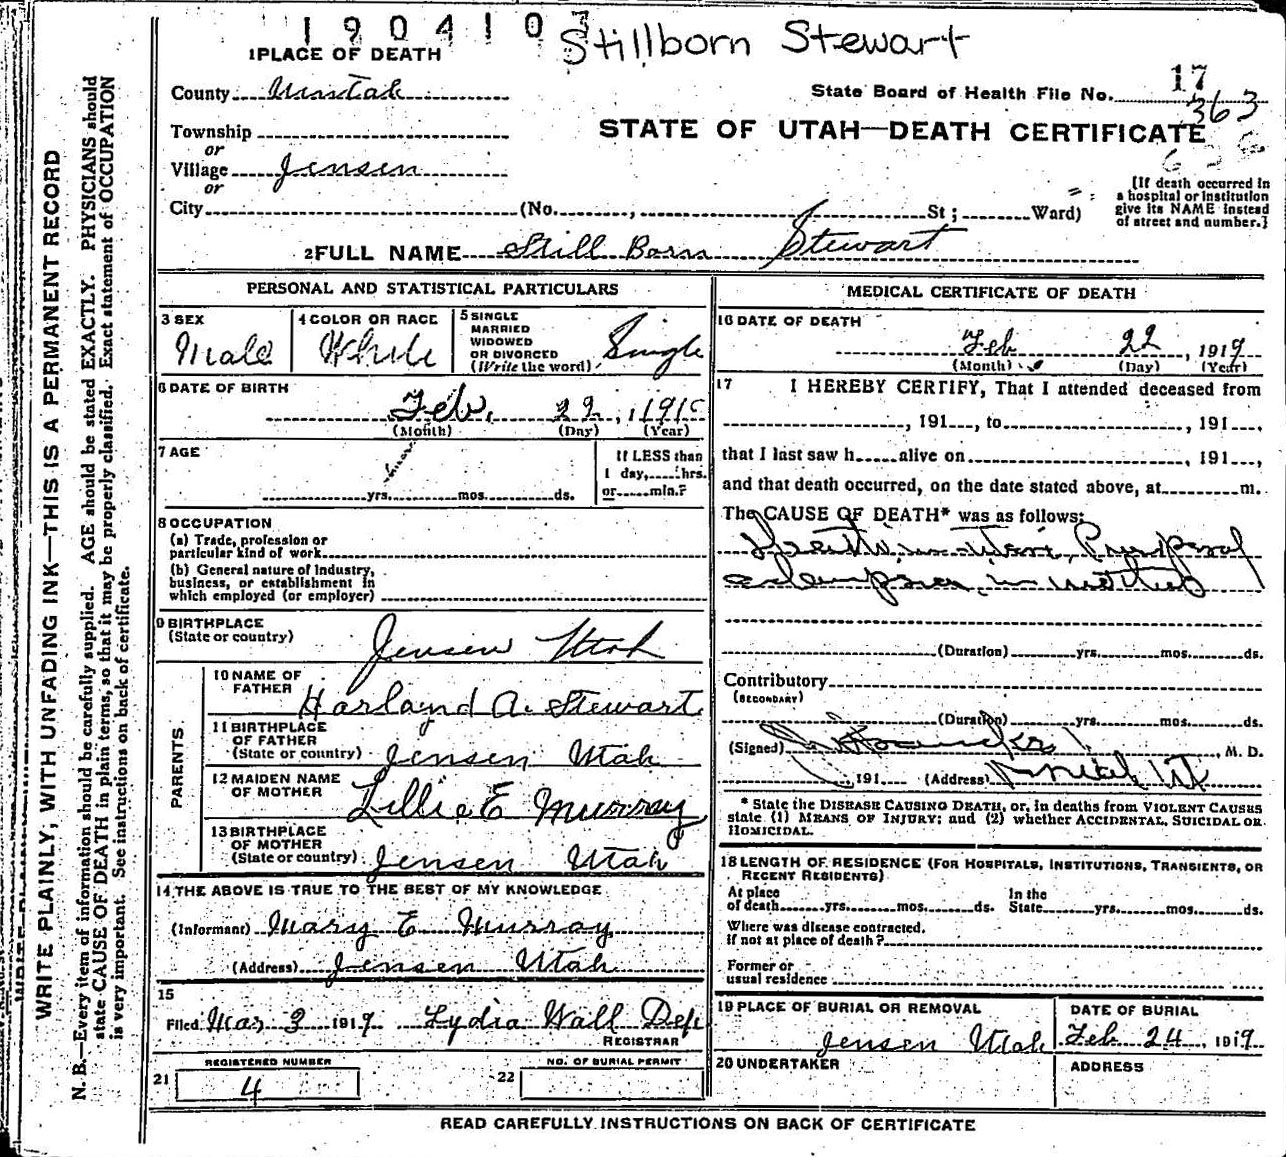 1904103
Stillborn Stewart
1 PLACE OF DEATH
County Uintah
State Board of Health File No. 17
363
Township
STATE OF UTAH—DEATH CERTIFICATE
or
Village Jensen
or
City (No. , St; Ward)
[If death occurred in
a hospital or institution
give its NAME instead
of street and number.]
2 FULL NAME Still Born Stewart
PERSONAL AND STATISTICAL PARTICULARS
3 SEX
Male
4 COLOR OR RACE
White
5 SINGLE
MARRIED
WIDOWED
OR DIVORCED
(Write the word)
Single
6 DATE OF BIRTH
Feb. 22, 191
(Month) (Day) (Year)
7 AGE
yrs. mos. ds.
If LESS than
1 day, hrs.
or min.?
8 OCCUPATION
(a) Trade, profession or
particular kind of work
(b) General nature of industry,
business, or establishment in
which employed (or employer)
9 BIRTHPLACE
(State or country)
Jensen Utah
PARENTS
10 NAME OF
FATHER
Harland A. Stewart
11 BIRTHPLACE
OF FATHER
(State or country)
Jensen Utah
12 MAIDEN NAME
OF MOTHER
Lillie E Murray
13 BIRTHPLACE
OF MOTHER
(State or country)
Jensen Utah
14 THE ABOVE IS TRUE TO THE BEST OF MY KNOWLEDGE
(Informant) Mary E Murray
(Address) Jensen Utah
15
Filed Mar 3 1919 Lydia Wall Dep
REGISTRAR
REGISTERED NUMBER
21 4
NO. OF BURIAL PERMIT
22
MEDICAL CERTIFICATE OF DEATH
16 DATE OF DEATH
Feb 22, 1919
(Month) (Day) (Year)
17 I HEREBY CERTIFY, That I attended deceased from
, 191 , to , 191 ,
that I last saw h alive on , 191 ,
and that death occurred, on the date stated above, at m.
The CAUSE OF DEATH* was as follows:
(Duration) yrs. mos. ds.
Contributory
(SECONDARY)
(Duration) yrs. mos. ds.
(Signed) , M. D.
, 191 (Address)
* State the DISEASE CAUSING DEATH, or, in deaths from VIOLENT CAUSES
state (1) MEANS OF INJURY; and (2) whether ACCIDENTAL, SUICIDAL OR
HOMICIDAL.
18 LENGTH OF RESIDENCE (FOR HOSPITALS, INSTITUTIONS, TRANSIENTS, OR
RECENT RESIDENTS)
At place
of death yrs. mos. ds.
In the
State yrs. mos. ds.
Where was disease contracted,
if not at place of death?
Former or
usual residence
19 PLACE OF BURIAL OR REMOVAL
Jensen Utah
DATE OF BURIAL
Feb 24, 1919
20 UNDERTAKER
ADDRESS
READ CAREFULLY INSTRUCTIONS ON BACK OF CERTIFICATE
WRITE PLAINLY, WITH UNFADING INK—THIS IS A PERMANENT RECORD
N. B.—Every item of information should be carefully supplied. AGE should be stated EXACTLY. PHYSICIANS should
state CAUSE OF DEATH in plain terms, so that it may be properly classified. Exact statement of OCCUPATION
is very important. See instructions on back of certificate.